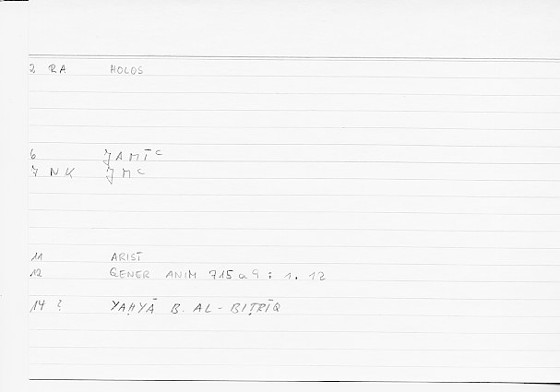 2 RA HOLOS
6 JAMĪʿ
7 NK JMʿ
11 ARIST
12 GENER ANIM 715 a 9 : 1. 12
14 ? YAḤYĀ B. AL-BIṬRĪQ